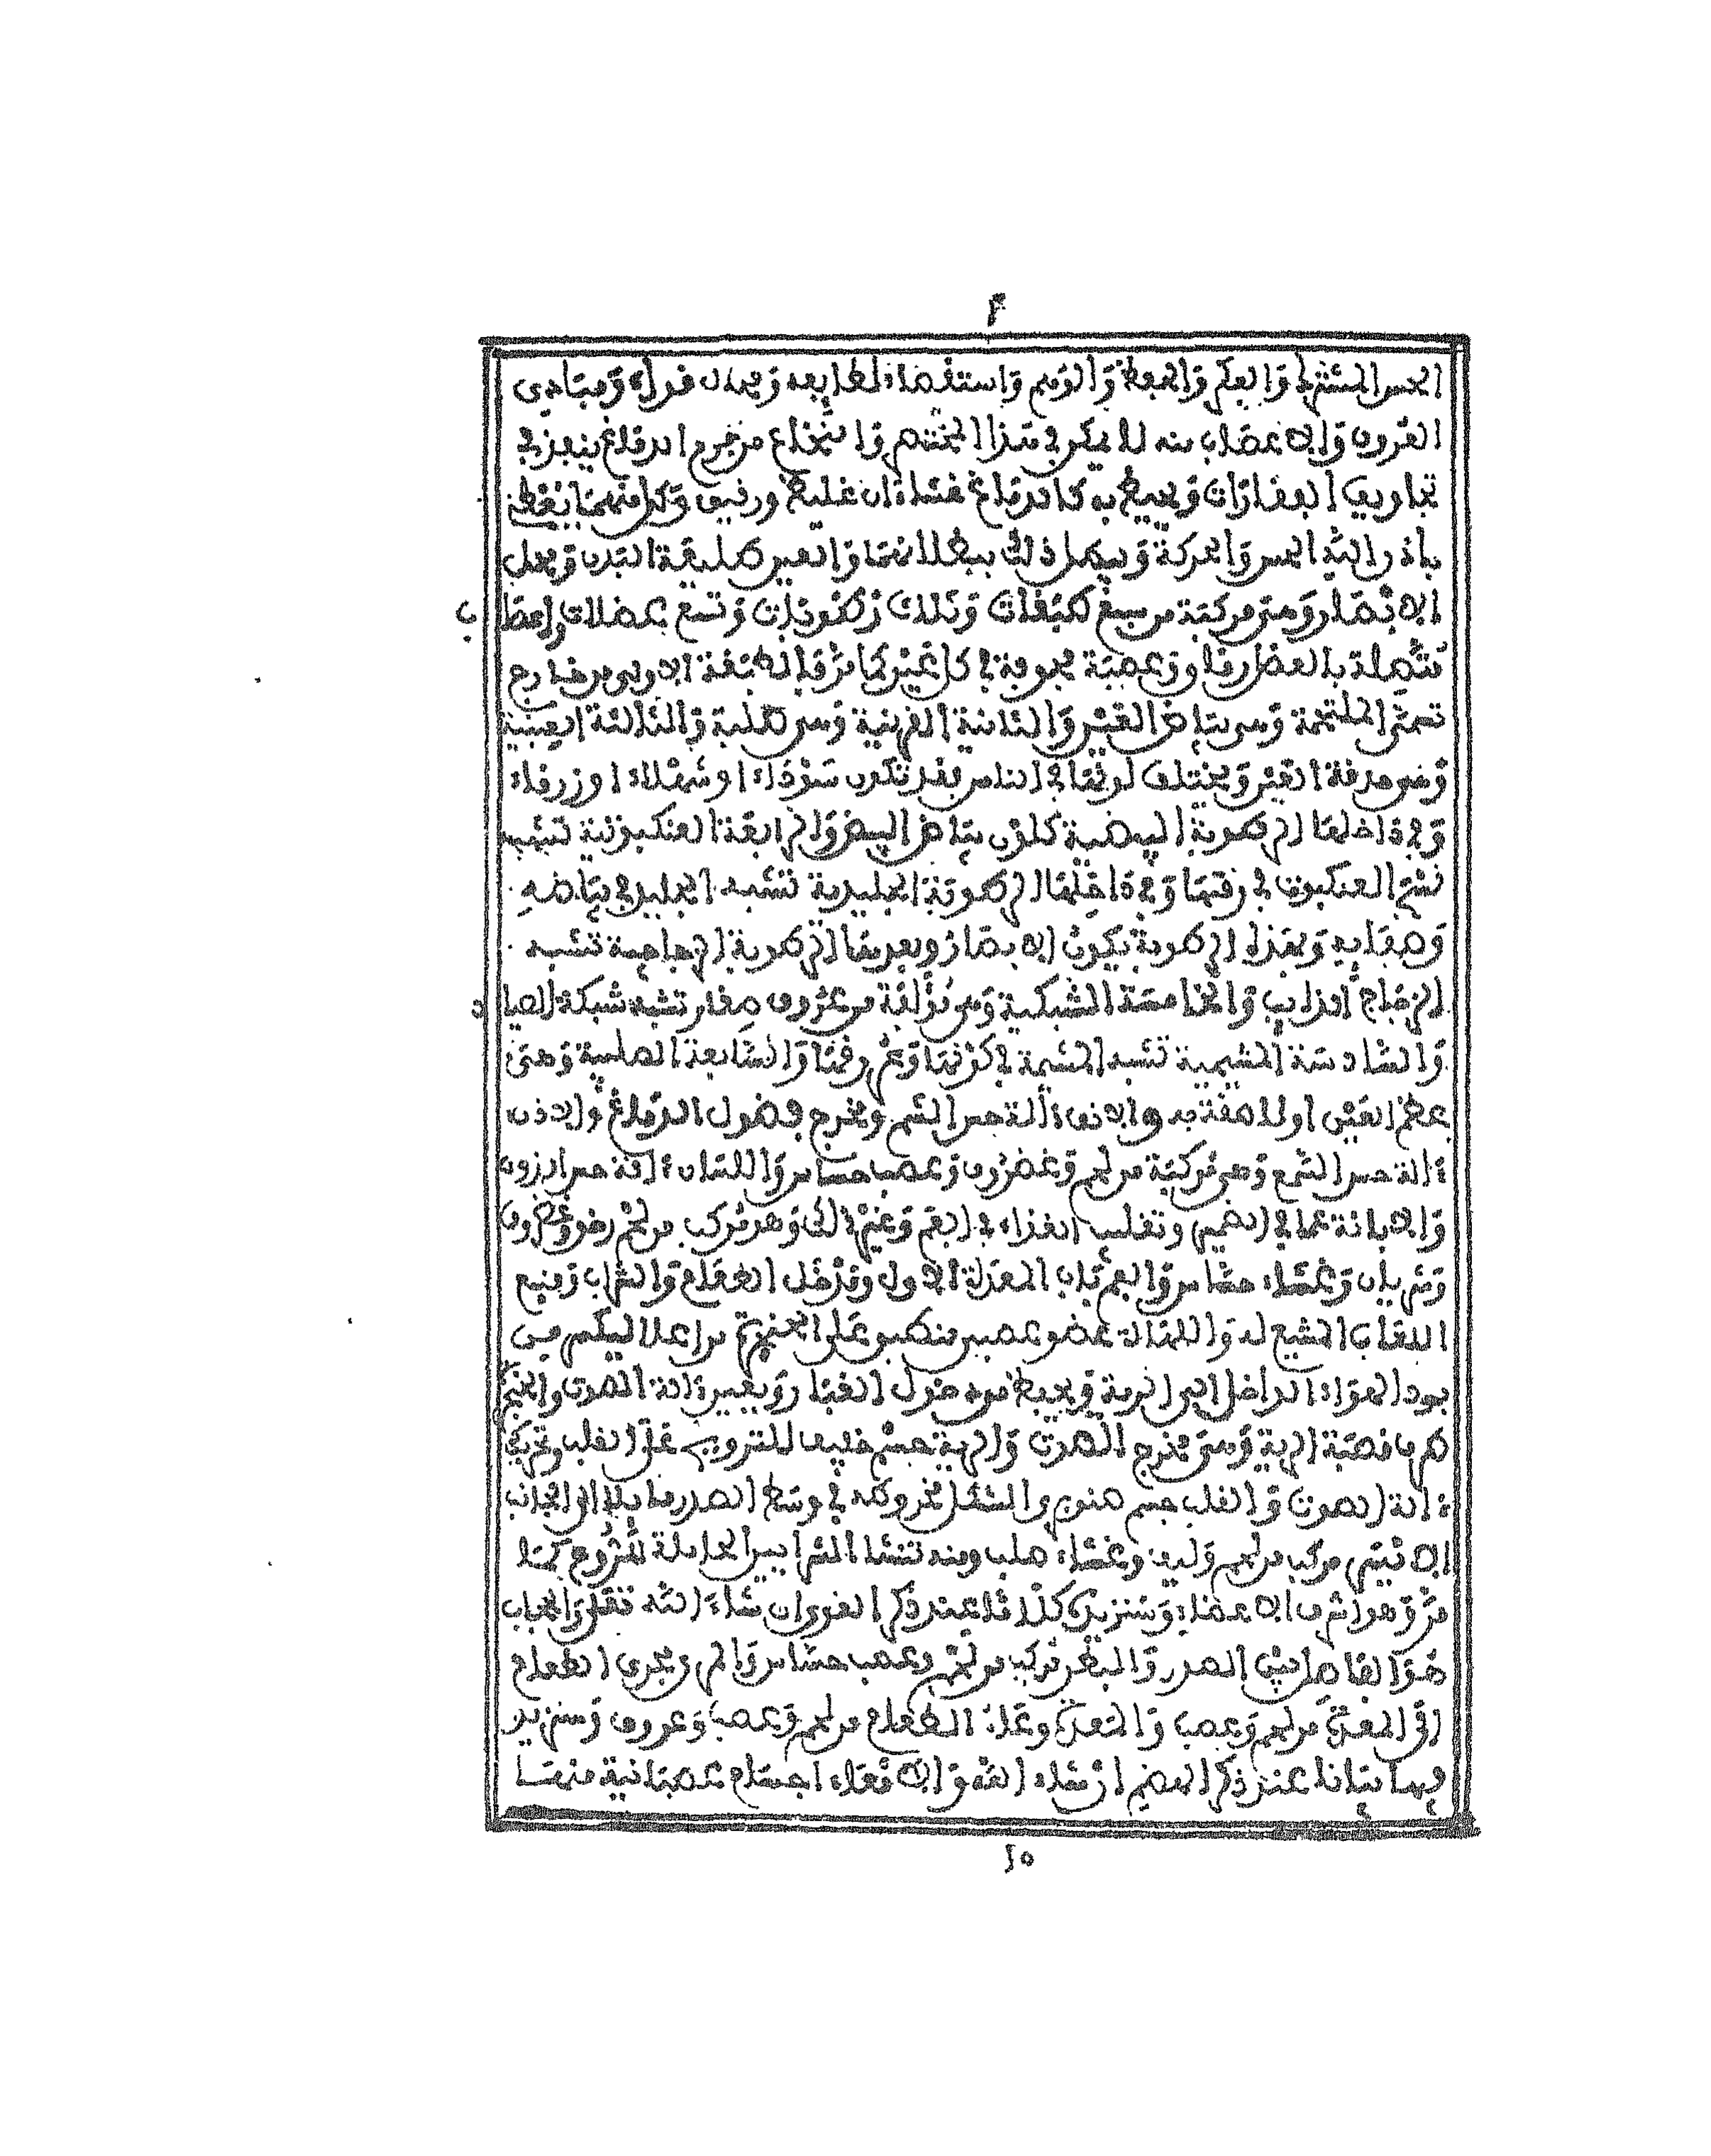 الحس المشترك والفكر والحفظ والوهم واستقصاء لطايفه ومحال قواه ومبادي
العروق والاعصاب منه لا يمكن في هذا المختصر والنخاع من جرم الدماغ ينفذ في
تجاويف الفقارات ويحيط به كالدماغ غشاءان غليظ ورقيق وكل منهما يعطي
باذن الله الحس والحركة ويبطل ذلك ببطلانهما والعين طليعة البدن ومحل
الابصار وهي مركبة من سبع طبقات وثلاث رطوبات وتسع عضلات واعصاب
متصلة بالعضل وعصبة مجوفة في كل عين كما مر فالطبقة الاولى من خارج
تسمى الملتحمة وهي بياض العين والثانية القرنية وهي صلبة والثالثة العنبية
وهو حدقة العين ويختلف لونها في الناس فقد تكون سوداء او شهلاء او زرقاء
وفي داخلها الرطوبة البيضية كلون بياض البيض والرابعة العنكبوتية تشبه
نسج العنكبوت في رقتها وفي داخلها الرطوبة الجليدية تشبه الجليد في بياضه
وصفايه وبهذه الرطوبة يكون الابصار وبعدها الرطوبة الزجاجية تشبه
الزجاج الذايب والخامسة الشبكية وهي مؤلفة من عروق صغار تشبه شبكة الصياد
والسادسة المشيمية تشبه المشيمة في كونها وعروقها والسابعة الصلبة وهي
عظم العين او لاصقة به والانف ءالة حس الشم ومخرج فضول الدماغ والاذن
ءالة حس السمع وهي مركبة من لحم وغضروف وعصب حساس واللسان ءالة حس الذوق
والابانة عما في الضمير وتقليب الغذاء في الفم وغير ذلك وهو مركب من لحم رخو وغضروف
وشريان وغشاء حساس والفم باب المعدة الاول ومدخل الطعام والشراب ومنبع
اللعاب المشيع له واللهاة عضو عصبي منصب على الحنجرة من اعلا ليكسر من
برد الهواء الداخل الى الرية ويحيط من دخول الغبار ويعين ءالة الصوت والحنجرة
طرف قصبة الرية وهي مخرج الصوت والرية جسم خفيف للترويح على القلب وتحريك
ءالة الصوت والقلب جسم صنوبري الشكل مخروطه في وسط الصدر مايلا الى الجانب
الايسر مركب من لحم وليف وغشاء صلب ومنه تنشا الشرايين الحاملة للروح كما
مر وهو اشرف الاعضاء وسنزيدك كلاما عند ذكر القوى ان شاء الله تعلى والحجاب
هو الفاصل بين الصدر والبطن مركب من لحم وعصب حساس والمريء مجرى الطعام
الى المعدة من لحم وعصب والمعدة وعاء الطعام من لحم وعصب وعروق وسنزيد
فيها بيانا عند ذكر الهضم ان شاء الله والامعاء اجسام عصبانية منها
١٥